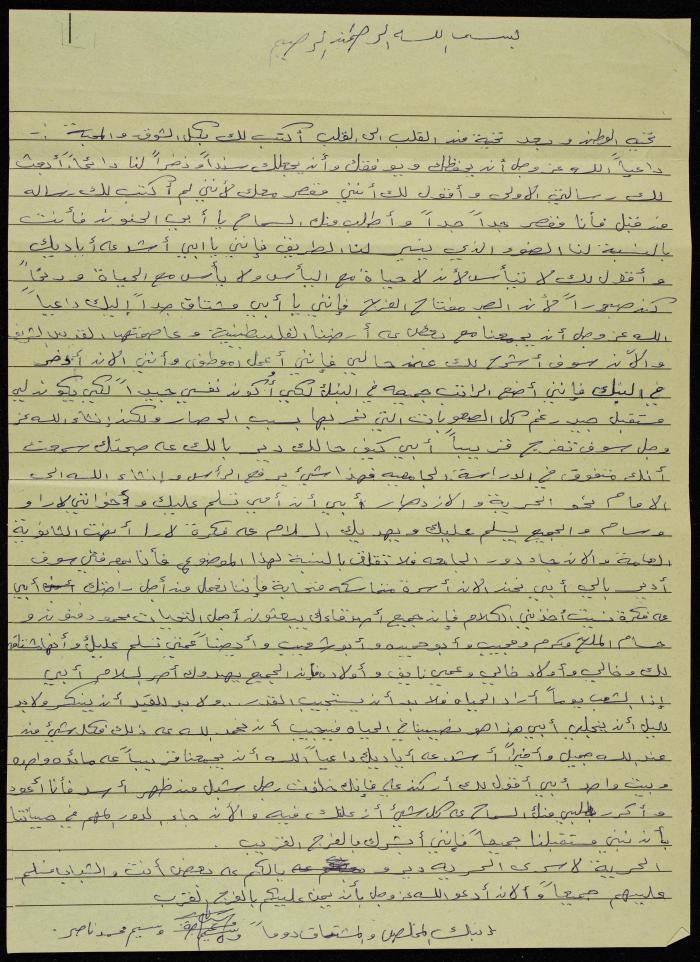 بسم الله الرحمن الرحيم
تحية الوطن وبعد تحية من القلب الى القلب أكتب لك بكل الشوق والمحبة :-
داعياً الله عز وجل أن يحفظك ويوفقك وأن يجعلك سنداً وذخراً لنا دائماً أبعث
لك رسالتي الاولى وأقول لك أنني مقصر معك لأنني لم أكتب لك رساله
من قبل فأنا مقصر جداً جداً وأطلب منك السماح يا أبي الحنون فأنت
بالنسبة لنا الضوء الذي ينير لنا الطريق فإنني يا ابي أشد على أياديك
و أقول لك لا تيأس لأن لا حياة مع اليأس ولا يأس مع الحياة ودوماً
كن صبوراً لأن الصبر مفتاح الفرج فإنني يا أبي مشتاق جداً إليك داعياً
الله عز وجل أن يجمعنا مع بعض على أرضنا الفلسطينية وعاصمتها القدس الشريف
والآن سوف أشرح لك عن حالي فإنني أعمل موظف وأنني الان
في البنك فإنني أضع الراتب جميعه في البنك لكي أكون نفسي جيداً لكي يكون لي
مستقبل جيد رغم كل الصعوبات التي نمر بها بسبب الحصار ولكن إنشاء الله عز
وجل سوف تفرج قريباً أبي كيف حالك دير بالك على صحتك سمعت
أنك متفوق في الدراسة الجامعيه فهذا شيء يرفع الرأس وإنشاء الله الى
الامام نحو الحرية والازدهار أبي أن أمي تسلم عليك وأخواتي لارا و
وسام والجميع يسلم عليك ويهديك السلام على فكرة لارا أنهت الثانوية
العامة والان جاء دور الجامعه فلا تقلق بالنسبة لهذا الموضوع فأنا سوف
أدير بالي أبي نحن الان أسرة متماسكه متحابة فإننا نعمل من أجل راحتك أبي
على فكرة نسيت أخذني الكلام فإن جميع أصدقاءك يبعثون أجمل التحيات محمود و
حسام الملح وكرم و وأبو و أبو شعيب وأيضاً عمتي تسلم عليك وأنها مشتاقه
لك وخالي وأولاد خالي وعمي نايف وأولاده فإن الجميع يهدوك أحر السلام أبي
إذا الشعب يوماً أراد الحياه فلا بد أن يستجيب القدر ... ولا بد للقيد أن ينكسر ولا بد
لليل أن ينجلي أبي هذا هو نصيبنا في الحياه فيجب أن نحمد الله على ذلك فكل شيء من
عند الله جميل وأخيراً أشد على أياديك داعياً الله أن يجمعنا قريباً على مائده واحده
وبيت واحد أبي أقول لك أركن علي فإنك خلفت رجل شبل من ظهر أسد فأنا أعود
و أكرر طلبي منك السماح على كل شيء أزعلتك فيه والان جاء الدور المهم في حياتنا
بأن نبني مستقبلنا جميعاً فإنني أبشرك بالفرج القريب .
الحرية لاسرى الحرية ديرو بالكم على بعض أنت والشباب وسلم
عليهم جميعاً والان أدعو الله عز وجل بأن يمن عليكم بالفرج القريب
إبنك المخلص والمشتاق دوماً وسيم محمد ناصر .